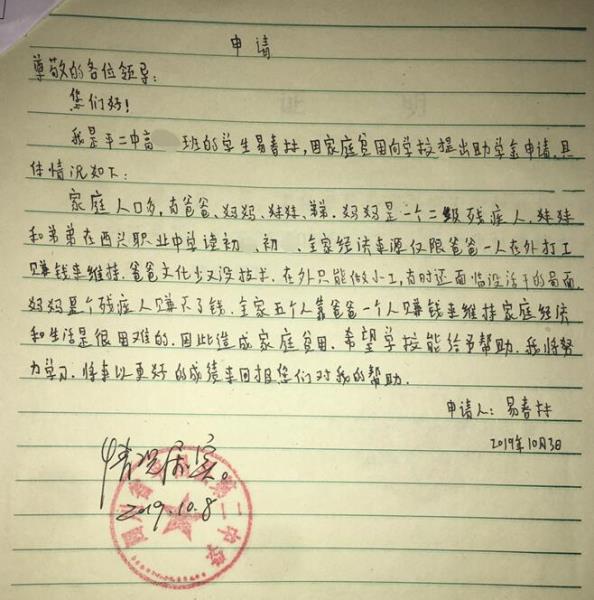 申请
尊敬的各位领导:
您们好!
我是平二中高 班的学生易春林,因家庭贫困向学校提出助学金申请,具
体情况如下:
家庭人口多,有爸爸、妈妈、妹妹、弟弟.妈妈是一个二级残疾人,妹妹
和弟弟在西兴职业中学读初 、初 .全家经济来源仅限爸爸一人在外打工
赚钱来维持.爸爸文化少又没技术.在外只能做小工,有时还面临没活干的局面.
妈妈是个残疾人赚不了钱.全家五个人靠爸爸一个人赚钱来维持家庭经济
和生活是很困难的.因此造成家庭贫困.希望学校能给予帮助.我将努
力学习.将来以更好的成绩来回报您们对我的帮助.
申请人:易春林
2019年10月3日
情况属实。
2019.10.8
四川省 第二中学
证 明